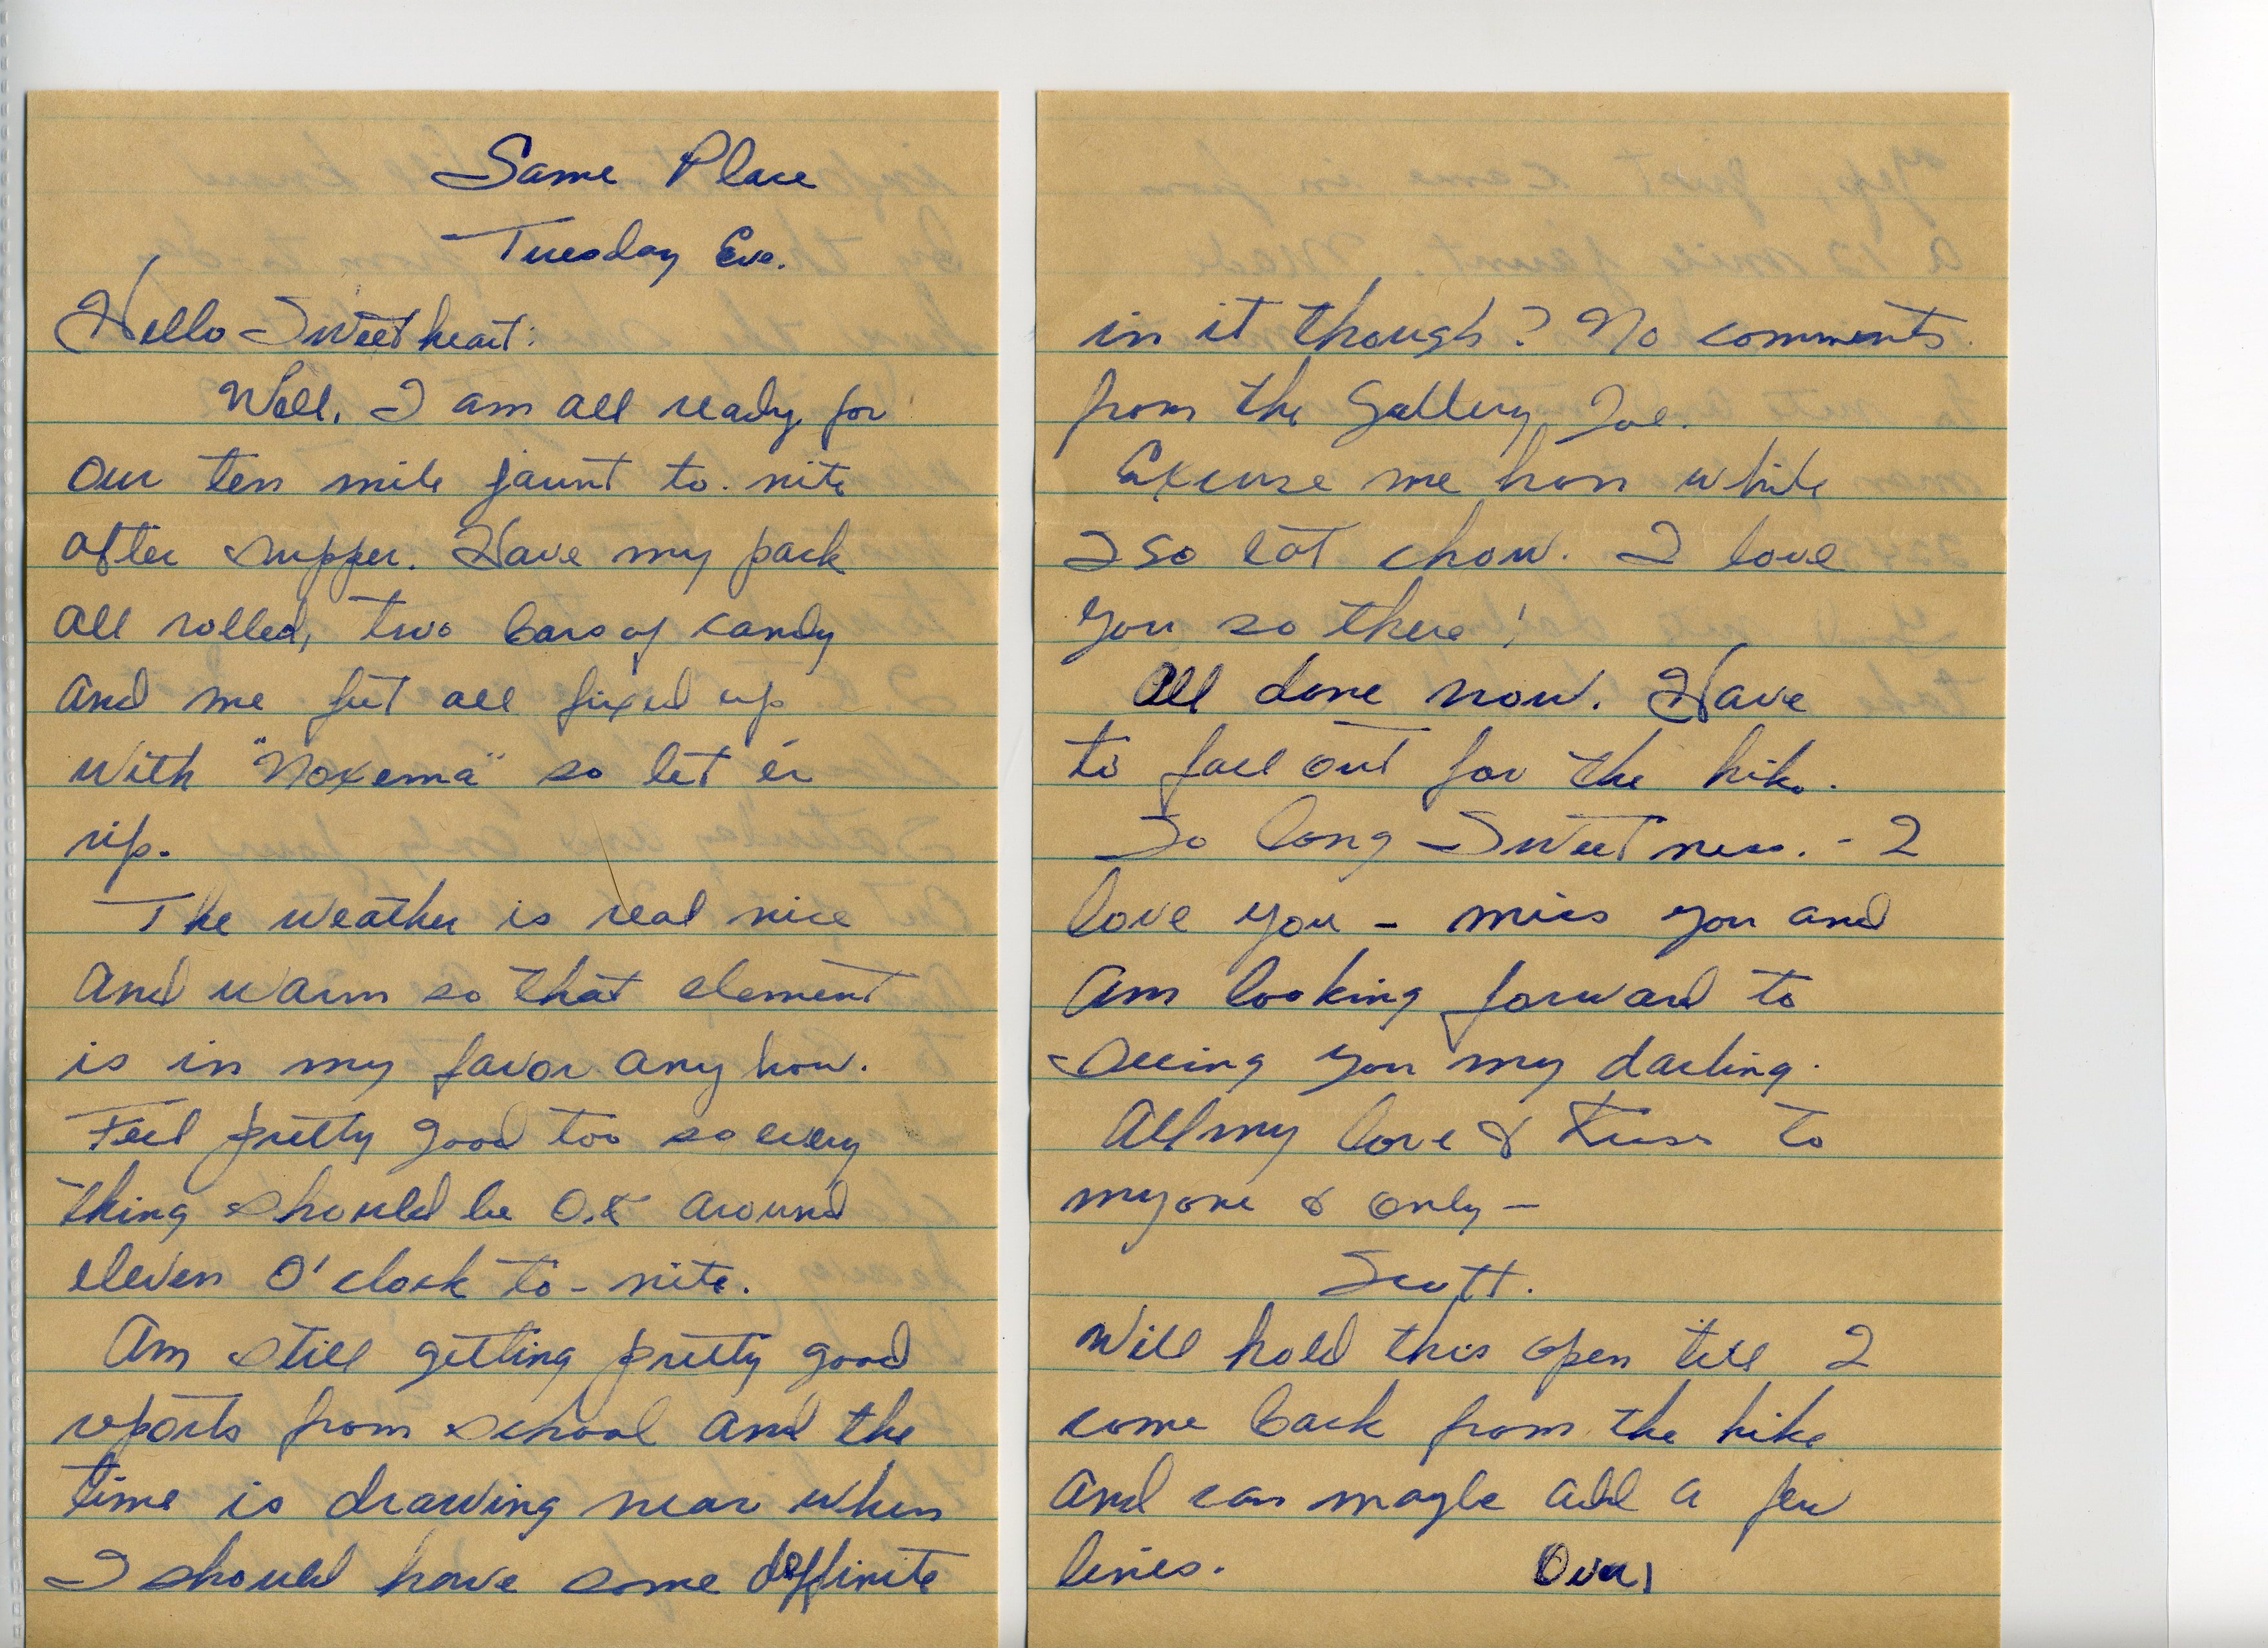 Same Place
Tuesday Eve.
Hello Sweetheart:
Well, I am all ready for
our ten mile jaunt to-nite
after supper. Have my pack
all rolled, two bars of candy
and me feet all fixed up
with "Noxema" so let 'er
rip.
The weather is real nice
and warm so that element
is in my favor anyhow.
Feel pretty good too so every
thing should be O.K around
eleven O'clock to-nite.
Am still getting pretty good
reports from school and the
time is drawing near when
I should have some deffinite
in it though? No comments
from the Gallery Joe.
Excuse me hon while
I go eat chow. I love
you so there!
All done now. Have
to fall out for the hike.
So long Sweetness. - I
love you - miss you and
am looking forward to
seeing you my darling.
All my love & Kisses to
my one & only -
Scott.
Will hold this open till I
come back from the hike
and can maybe add a few
lines. Over)